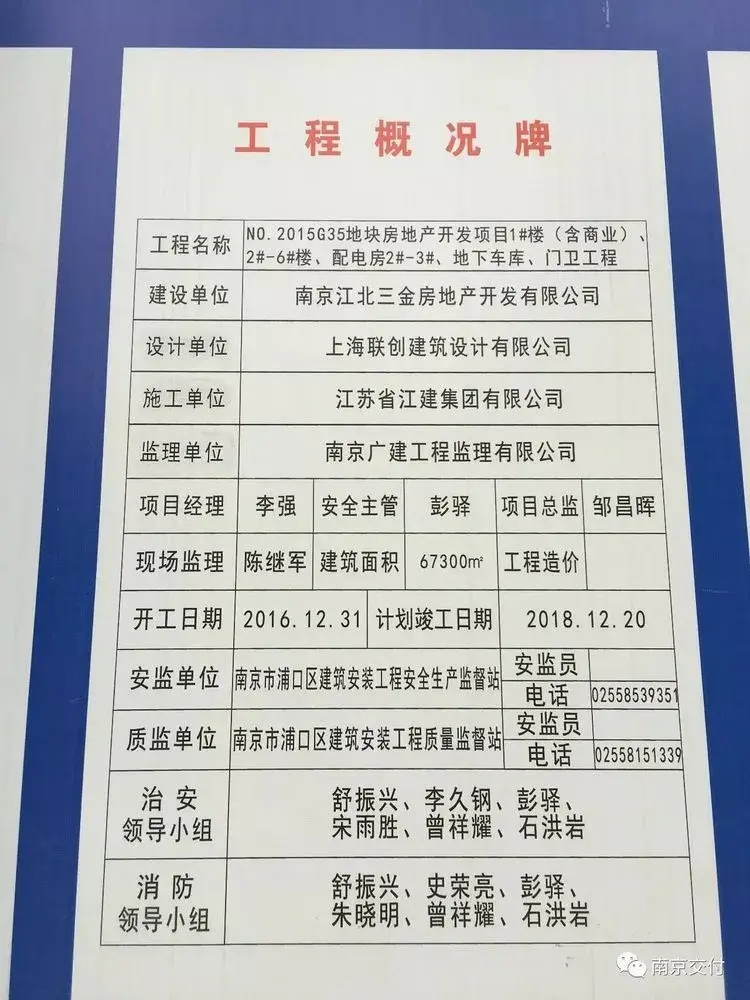 工程概况牌
工程名称 NO.2015G35地块房地产开发项目1#楼（含商业）、
2#-6#楼、配电房2#-3#、地下车库、门卫工程
建设单位 南京江北三金房地产开发有限公司
设计单位 上海联创建筑设计有限公司
施工单位 江苏省江建集团有限公司
监理单位 南京广建工程监理有限公司
项目经理 李强 安全主管 彭驿 项目总监 邹昌晖
现场监理 陈继军 建筑面积 67300㎡ 工程造价
开工日期 2016.12.31 计划竣工日期 2018.12.20
安监单位 南京市浦口区建筑安装工程安全生产监督站 安监员
电话 02558539351
质监单位 南京市浦口区建筑安装工程质量监督站 安监员
电话 02558151339
治安
领导小组
舒振兴、李久钢、彭驿、
宋雨胜、曾祥耀、石洪岩
消防
领导小组
舒振兴、史荣亮、彭驿、
朱晓明、曾祥耀、石洪岩
南京交付